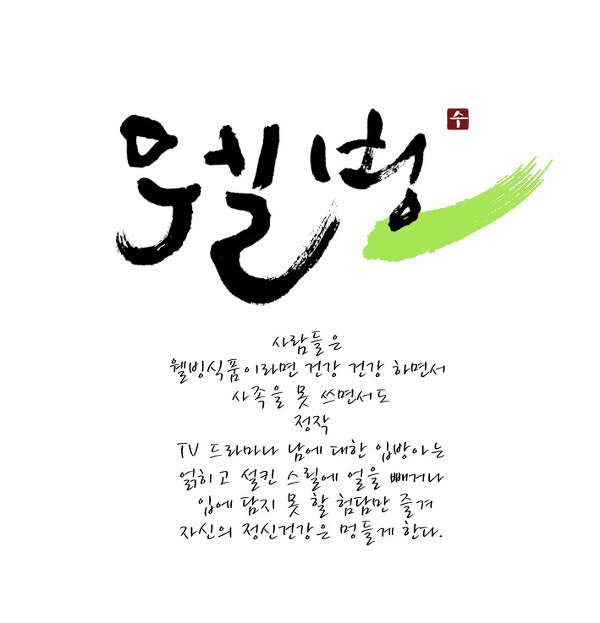 웰빙
수
사람들은
웰빙식품이라면 건강 건강 하면서
사족을 못 쓰면서도
정작
TV 드라마나 남에 대한 입방아는
얽히고 설킨 스릴에 얼을 빼거나
입에 담지 못 할 험담만 즐겨
자신의 정신건강은 멍들게 한다.